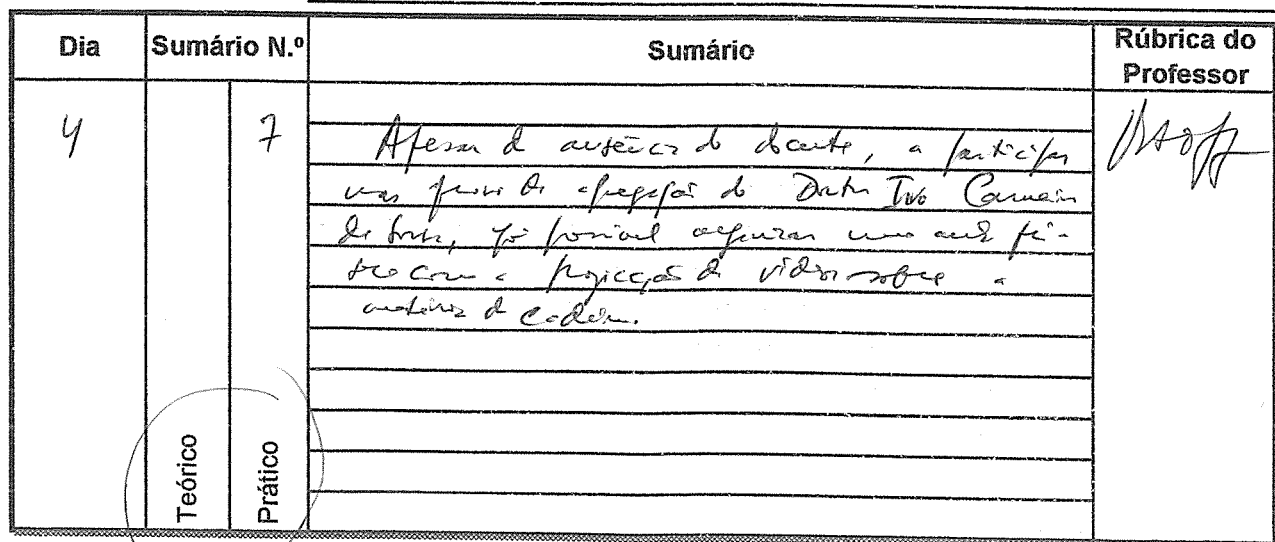 Dia Sumário N.º Sumário Rúbrica do Professor
4 7 Apesar da ausência do docente, a participar
nas provas de agregação do Doutor Ivo Carneiro
de Sousa, foi possível organizar uma aula prá-
tica com a projecção de vídeo sobre a
matéria da cadeira.
Teórico Prático